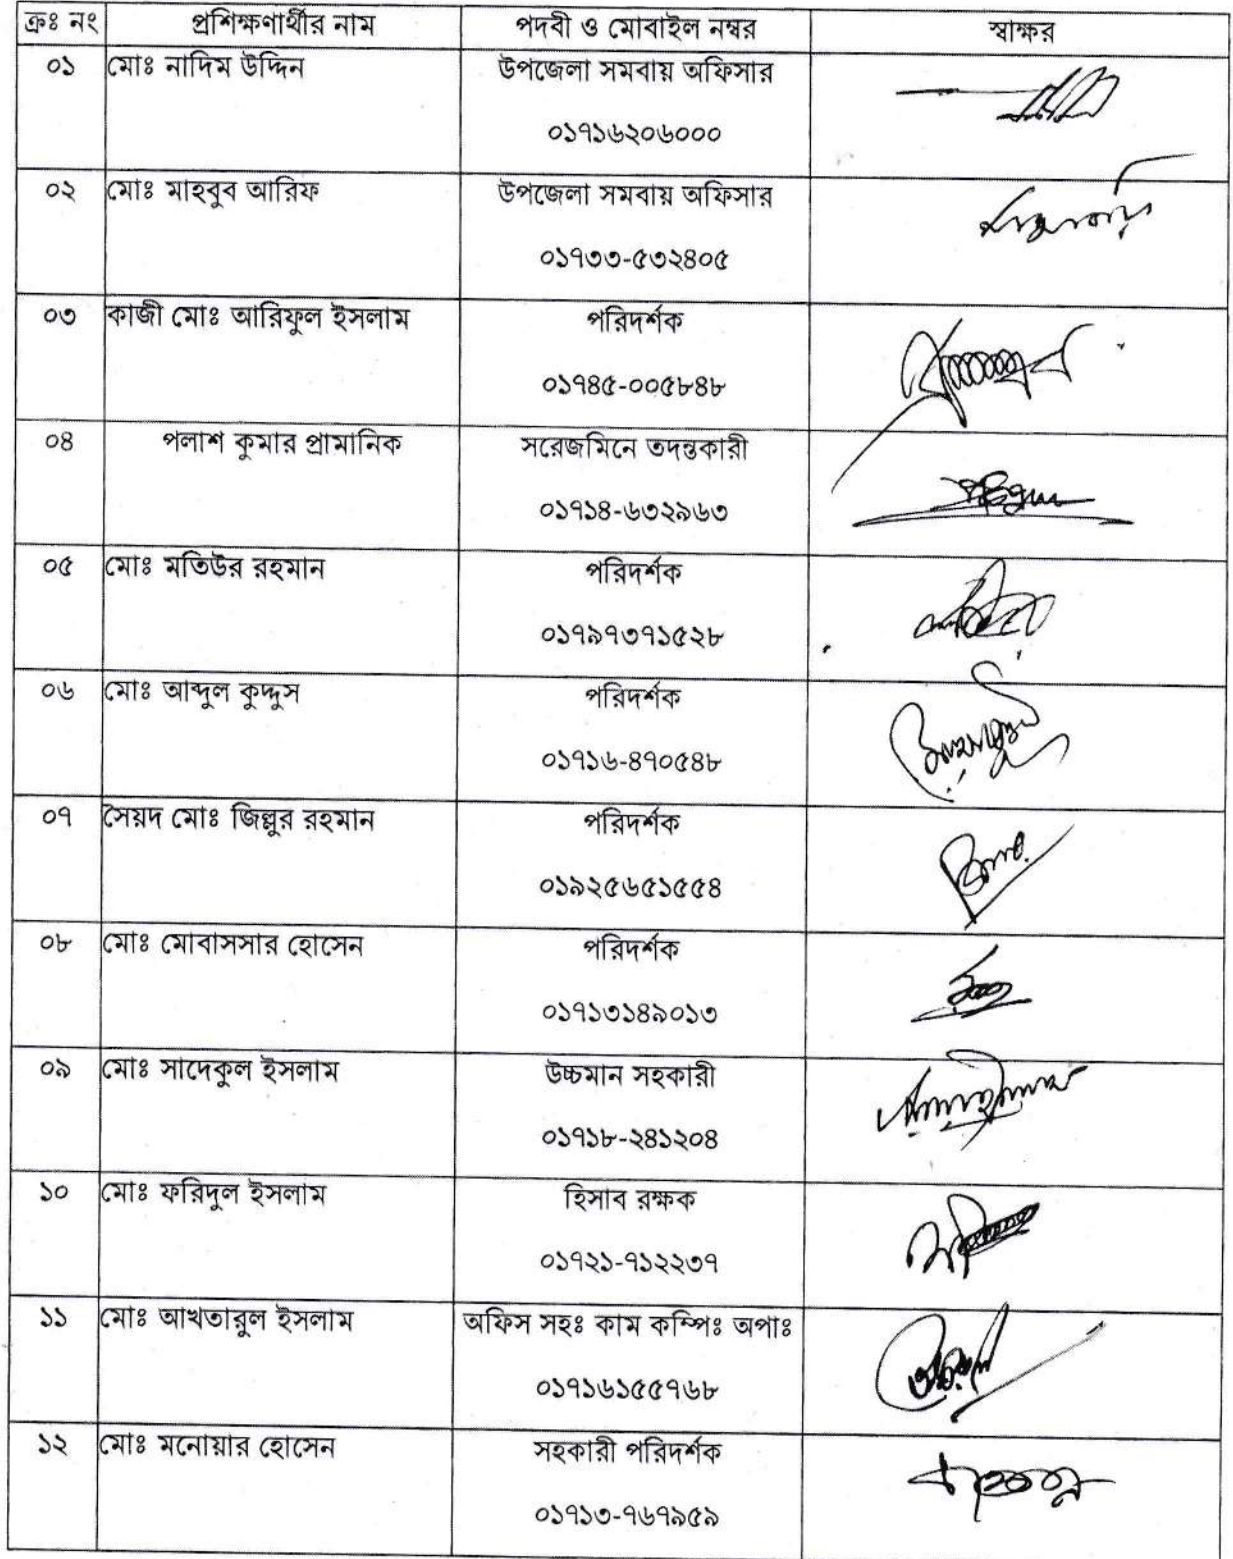 ক্রঃ নং প্রশিক্ষণার্থীর নাম পদবী ও মোবাইল নম্বর স্বাক্ষর
০১ মোঃ নাদিম উদ্দিন উপজেলা সমবায় অফিসার
০১৭১৬২০৬০০০
০২ মোঃ মাহবুব আরিফ উপজেলা সমবায় অফিসার
০১৭৩৩-৫৩২৪০৫
০৩ কাজী মোঃ আরিফুল ইসলাম পরিদর্শক
০১৭৪৫-০০৫৮৪৮
০৪ পলাশ কুমার প্রামানিক সরেজমিনে তদন্তকারী
০১৭১৪-৬৩২৯৬৩
০৫ মোঃ মতিউর রহমান পরিদর্শক
০১৭৯৭৩৭১৫২৮
০৬ মোঃ আব্দুল কুদ্দুস পরিদর্শক
০১৭১৬-৪৭০৫৪৮
০৭ সৈয়দ মোঃ জিল্লুর রহমান পরিদর্শক
০১৯২৫৬৫১৫৫৪
০৮ মোঃ মোবাসসার হোসেন পরিদর্শক
০১৭১৩১৪৯০১৩
০৯ মোঃ সাদেকুল ইসলাম উচ্চমান সহকারী
০১৭১৮-২৪১২০৪
১০ মোঃ ফরিদুল ইসলাম হিসাব রক্ষক
০১৭২১-৭১২২৩৭
১১ মোঃ আখতারুল ইসলাম অফিস সহঃ কাম কম্পিঃ অপাঃ
০১৭১৬১৫৫৭৬৮
১২ মোঃ মনোয়ার হোসেন সহকারী পরিদর্শক
০১৭১৩-৭৬৭৯৫৯